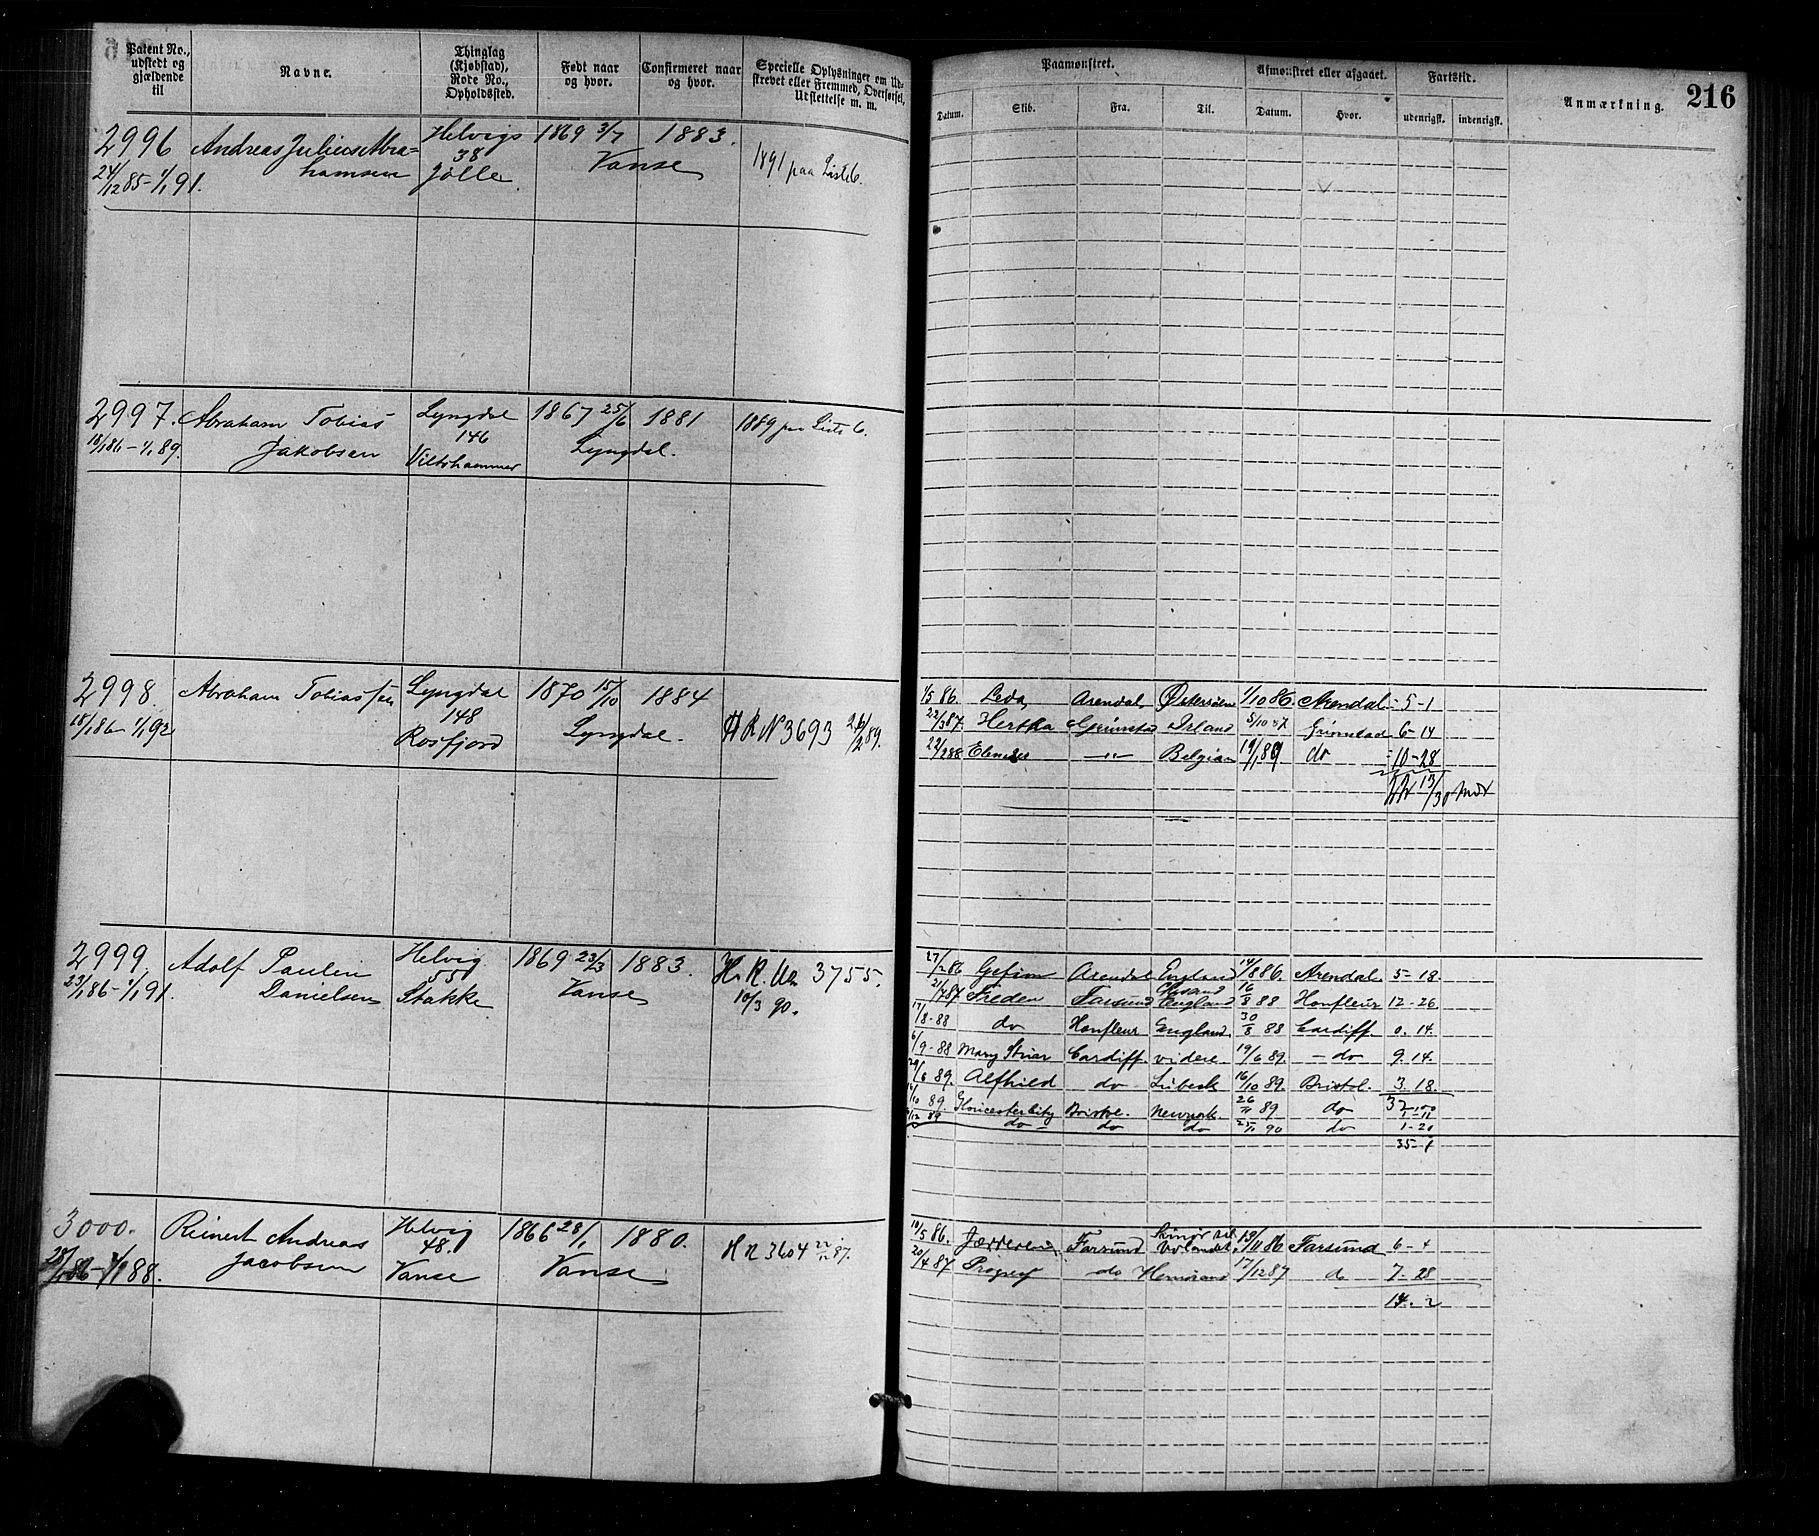 Patent No., udstedt og gjældende til
Navne.
Thinglag (Kjøbstad), Rode No., Opholdssted.
Født naar og hvor.
Confirmeret naar og hvor.
Specielle Oplysninger om Udskrevet eller Fremmed, Overførsel, Udslettelse m. m.
Paamønstret.
Afmønstret eller afgaaet.
Fartstid.
Anmærkning.
216
Datum.
Skib.
Fra.
Til.
Datum.
Hvor.
udenrigsk.
indenrigsk.
2996 Andreas Julius Abra= Helvigs 1869 3/7 1883.
24/12 85 - 1/1 91. hamsen 38 Jølle Vanse 1891 paa Liste 6.
2997. Abraham Tobias Lyngdal 1867 25/6 1881 1889 paa Liste 6.
18/1 86 - 1/1 89. Jakobsen 146 Lyngdal.
2998. Abraham Tobiassen Lyngdal 1870 15/10 1884
18/1 86 - 1/1 92 148 Rosfjord Lyngdal. H R N 3693 26/2 89.
1/5 86. Leda Arendal Østersøen 1/10 86. Arendal 5-1
22/3 87. Hertha Grimstad Irland 5/10 87 Grimstad 6-14
22/2 88 -"- Belgien 19/1 89 do 10-28
2999 Adolf Paulin Helvig 1869 23/3 1883. H. R. No. 3755.
23/1 86 - 1/1 91. Danielsen 55 Stakke Vanse 10/3 90.
27/2 86 Gefion Arendal England 14/8 86. Arendal 5-18
21/7 87 Freden Farsund England 16/8 88 Honfleur 12-26
17/8-88 do Honfleur England 30/8 88 Cardiff 0.14.
6/9-88 Mary Stuar Cardiff videre 19/6 89. - do 9.14.
29/6 89. Alfhild do Lübeck 16/10 89. Bristol. 3.18.
16/10 89 Gloucester City Bristol. Newyork 26/11 89 do
do do do 25/1 90 do 1-20
35-1
3000. Reinert Andreas Helvig 1866 28/1 1880. H R 3604 22/12 87.
Jacobsen 48. Vanse Vanse
10/5 86. Farsund 86 Farsund 6-4
20/4 87 Progres do 17/12 87 do 7.28
14.2